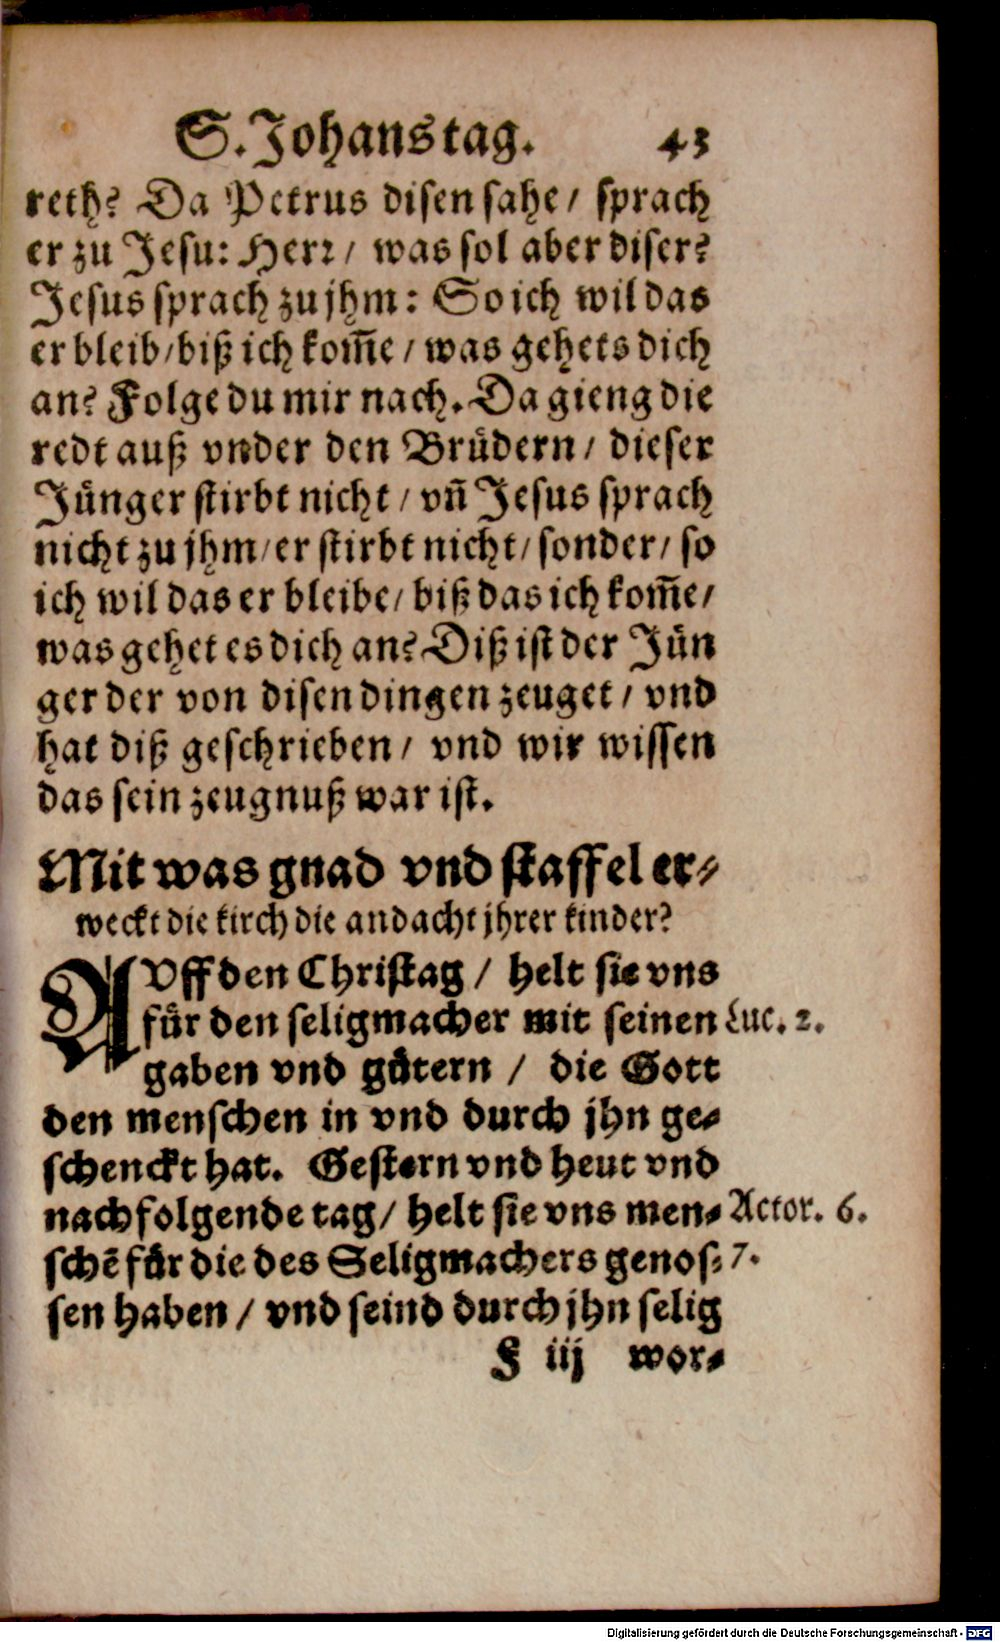 S. Johans tag. 43
reth? Da Petrus disen sahe / sprach
er zu Jesu: Herr / was sol aber diser?
Jesus sprach zu jhm: So ich wil das
er bleib / biß ich kom̃e / was gehets dich
an? Folge du mir nach. Da gieng die
redt auß vnder den Bruͤdern / dieser
Juͤnger stirbt nicht / vñ Jesus sprach
nicht zu jhm / er stirbt nicht / sonder / so
ich wil das er bleibe / biß das ich kom̃e /
was gehet es dich an? Diß ist der Juͤn
ger der von disen dingen zeuget / vnd
hat diß geschrieben / vnd wir wissen
das sein zeugnuß war ist.
Mit was gnad vnd staffel er-
weckt die kirch die andacht jhrer kinder?
AVff den Christag / helt sie vns
fuͤr den seligmacher mit seinen Luc. 2.
gaben vnd guͤtern / die Gott
den menschen in vnd durch jhn ge-
schenckt hat. Gestern vnd heut vnd
nachfolgende tag / helt sie vns men- Actor. 6.
schẽ fuͤr die des Seligmachers genos- 7.
sen haben / vnd seind durch jhn selig
F iij wor-
Digitalisierung gefördert durch die Deutsche Forschungsgemeinschaft - DFG